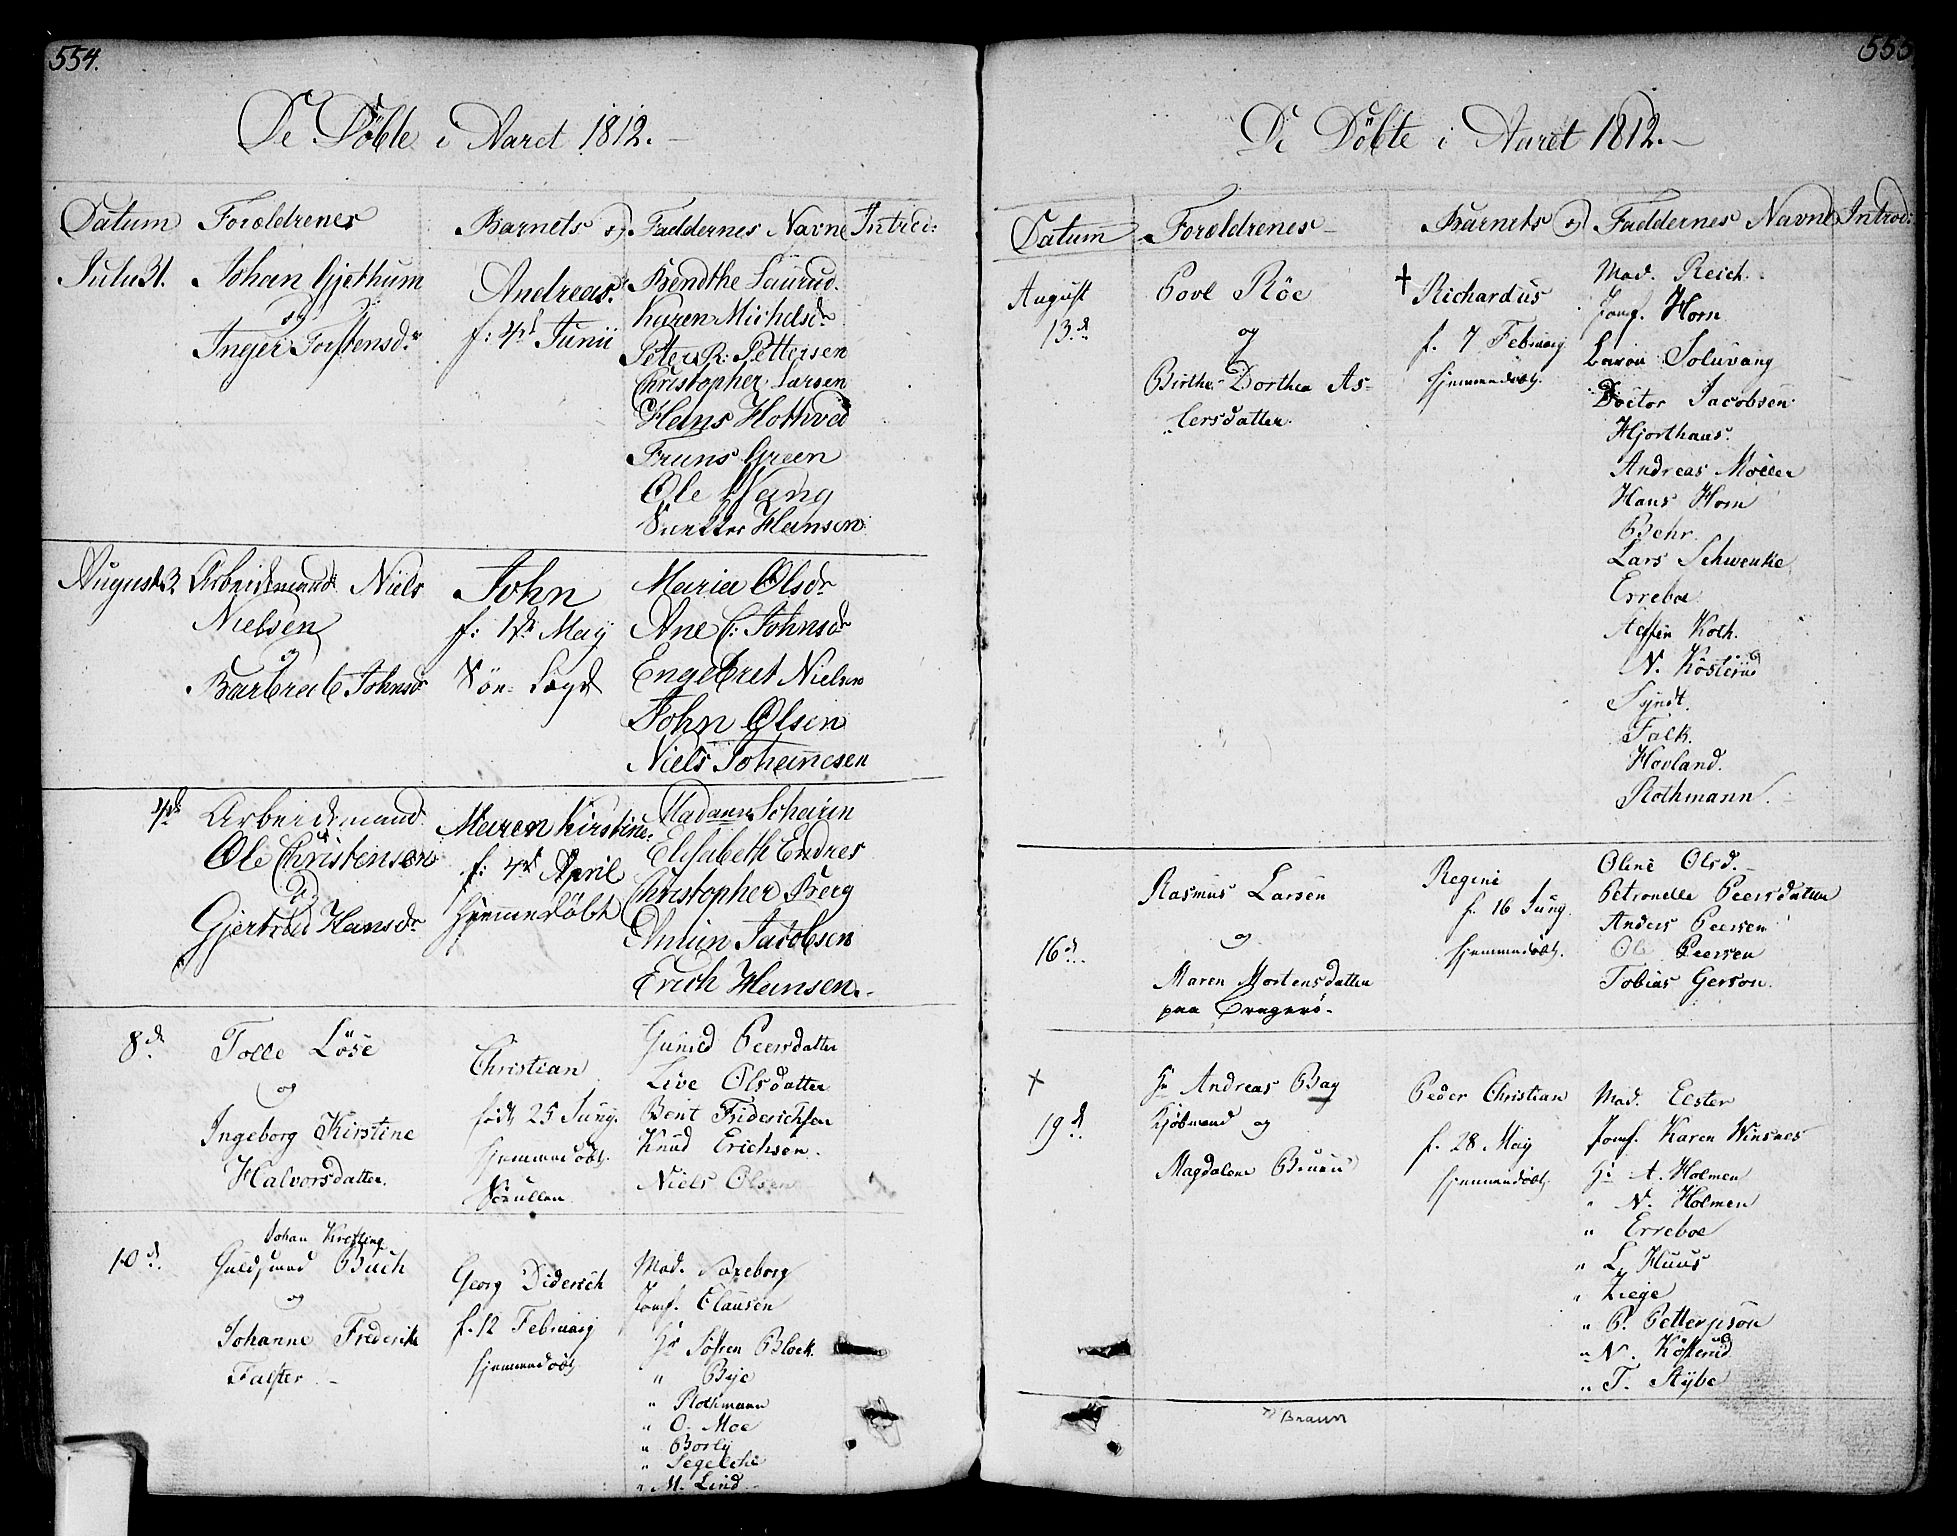 554.
De Döbte i Aaret 1812.
Datum Forældrenes Barnets og Faddernes Navne Introd:
Julii 31. Johan Gjethum
og
Inger Torstensdr
Andreas
f: 4d Junii
Bendthe Laurud.
Karen Michelsdr
Peter R: Pettersen
Christopher Larsen
Hans Hothved
Truns Green
Ole Wang
Hansen
August 3 Arbeidsmand Niels
Nielsen
og
Barbra C Johnsdr
John
f: 1d May
Maria Olsdr
Ane C: Johnsdr
Engelbret Nielsen
John Olsen
Niels Johannesen
4d Arbeidsmand
Ole Christensen
og
Gjertrud Hansdr
Maren Kirstine
f: 4d April
Hjemmedöbt
Madame Scharen
Elisabeth Endres
Christopher Berg
Amun Jacobsen
Erich Hansen.
8d Tolle Löse
og
Ingeborg Kirstine
Halvorsdatter.
Christian
födt 25 Juny.
hjemmedöbt.
Gunild Peersdatter
Live Olsdatter
Bent Friderichsen
Knud Erichsen.
Niels Olsen
10d. Johan Kirsting
Guldsmed Buch
og
Johanne Frederike
Falster.
Georg Diderich
f. 12 Februarj
hjemmedöbt
Mad. Saxeborg
Jomf. Clausen
Hr Söfren Block.
" Bye
" Rothmann
" O. Moe
" Borly
" Segelche
" M. Lind
555.
De Döbte i Aaret 1812.
Datum Forældrenes Barnets og Faddernes Navne Introd:
August
13d.
Povl Röe
og
Birthe Dorthea As-
lersdatter.
† Richardus
f. 7 Februarj
hjemmedöbt.
Mad. Reich.
Jomf. Horn
Baron Soluvang
Doctor Jacobsen
Hjorthaus.
Andreas Möller
Hans Horn
Behr.
Lars Schwenke
Erreboe
Koth.
N. Kösterud
Syndt.
Falk.
Hovland.
Rothmann.
16d. Rasmus Larsen
og
Maren Mortensdatter
paa Bragerö.
Regine
f. 16 Juny.
hjemmedöbt.
Oline Olsd.
Petronelle Peersdatter
Anders Peersen
Ole Peersen
Tobias Gerson.
†
19d.
Hr Andreas Bay
Kjöbmand og
Magdalene Bruun
Peder Christian
f. 28 May
hjemmedöbt.
Mad. Elster
Jomf. Karen Winsnes
Hr A. Holmen
" N. Holmen
" Erreboe
" L. Huus
" Ziege
" P. Petterson
" N. Kösterud
" T. Stybe
Braun